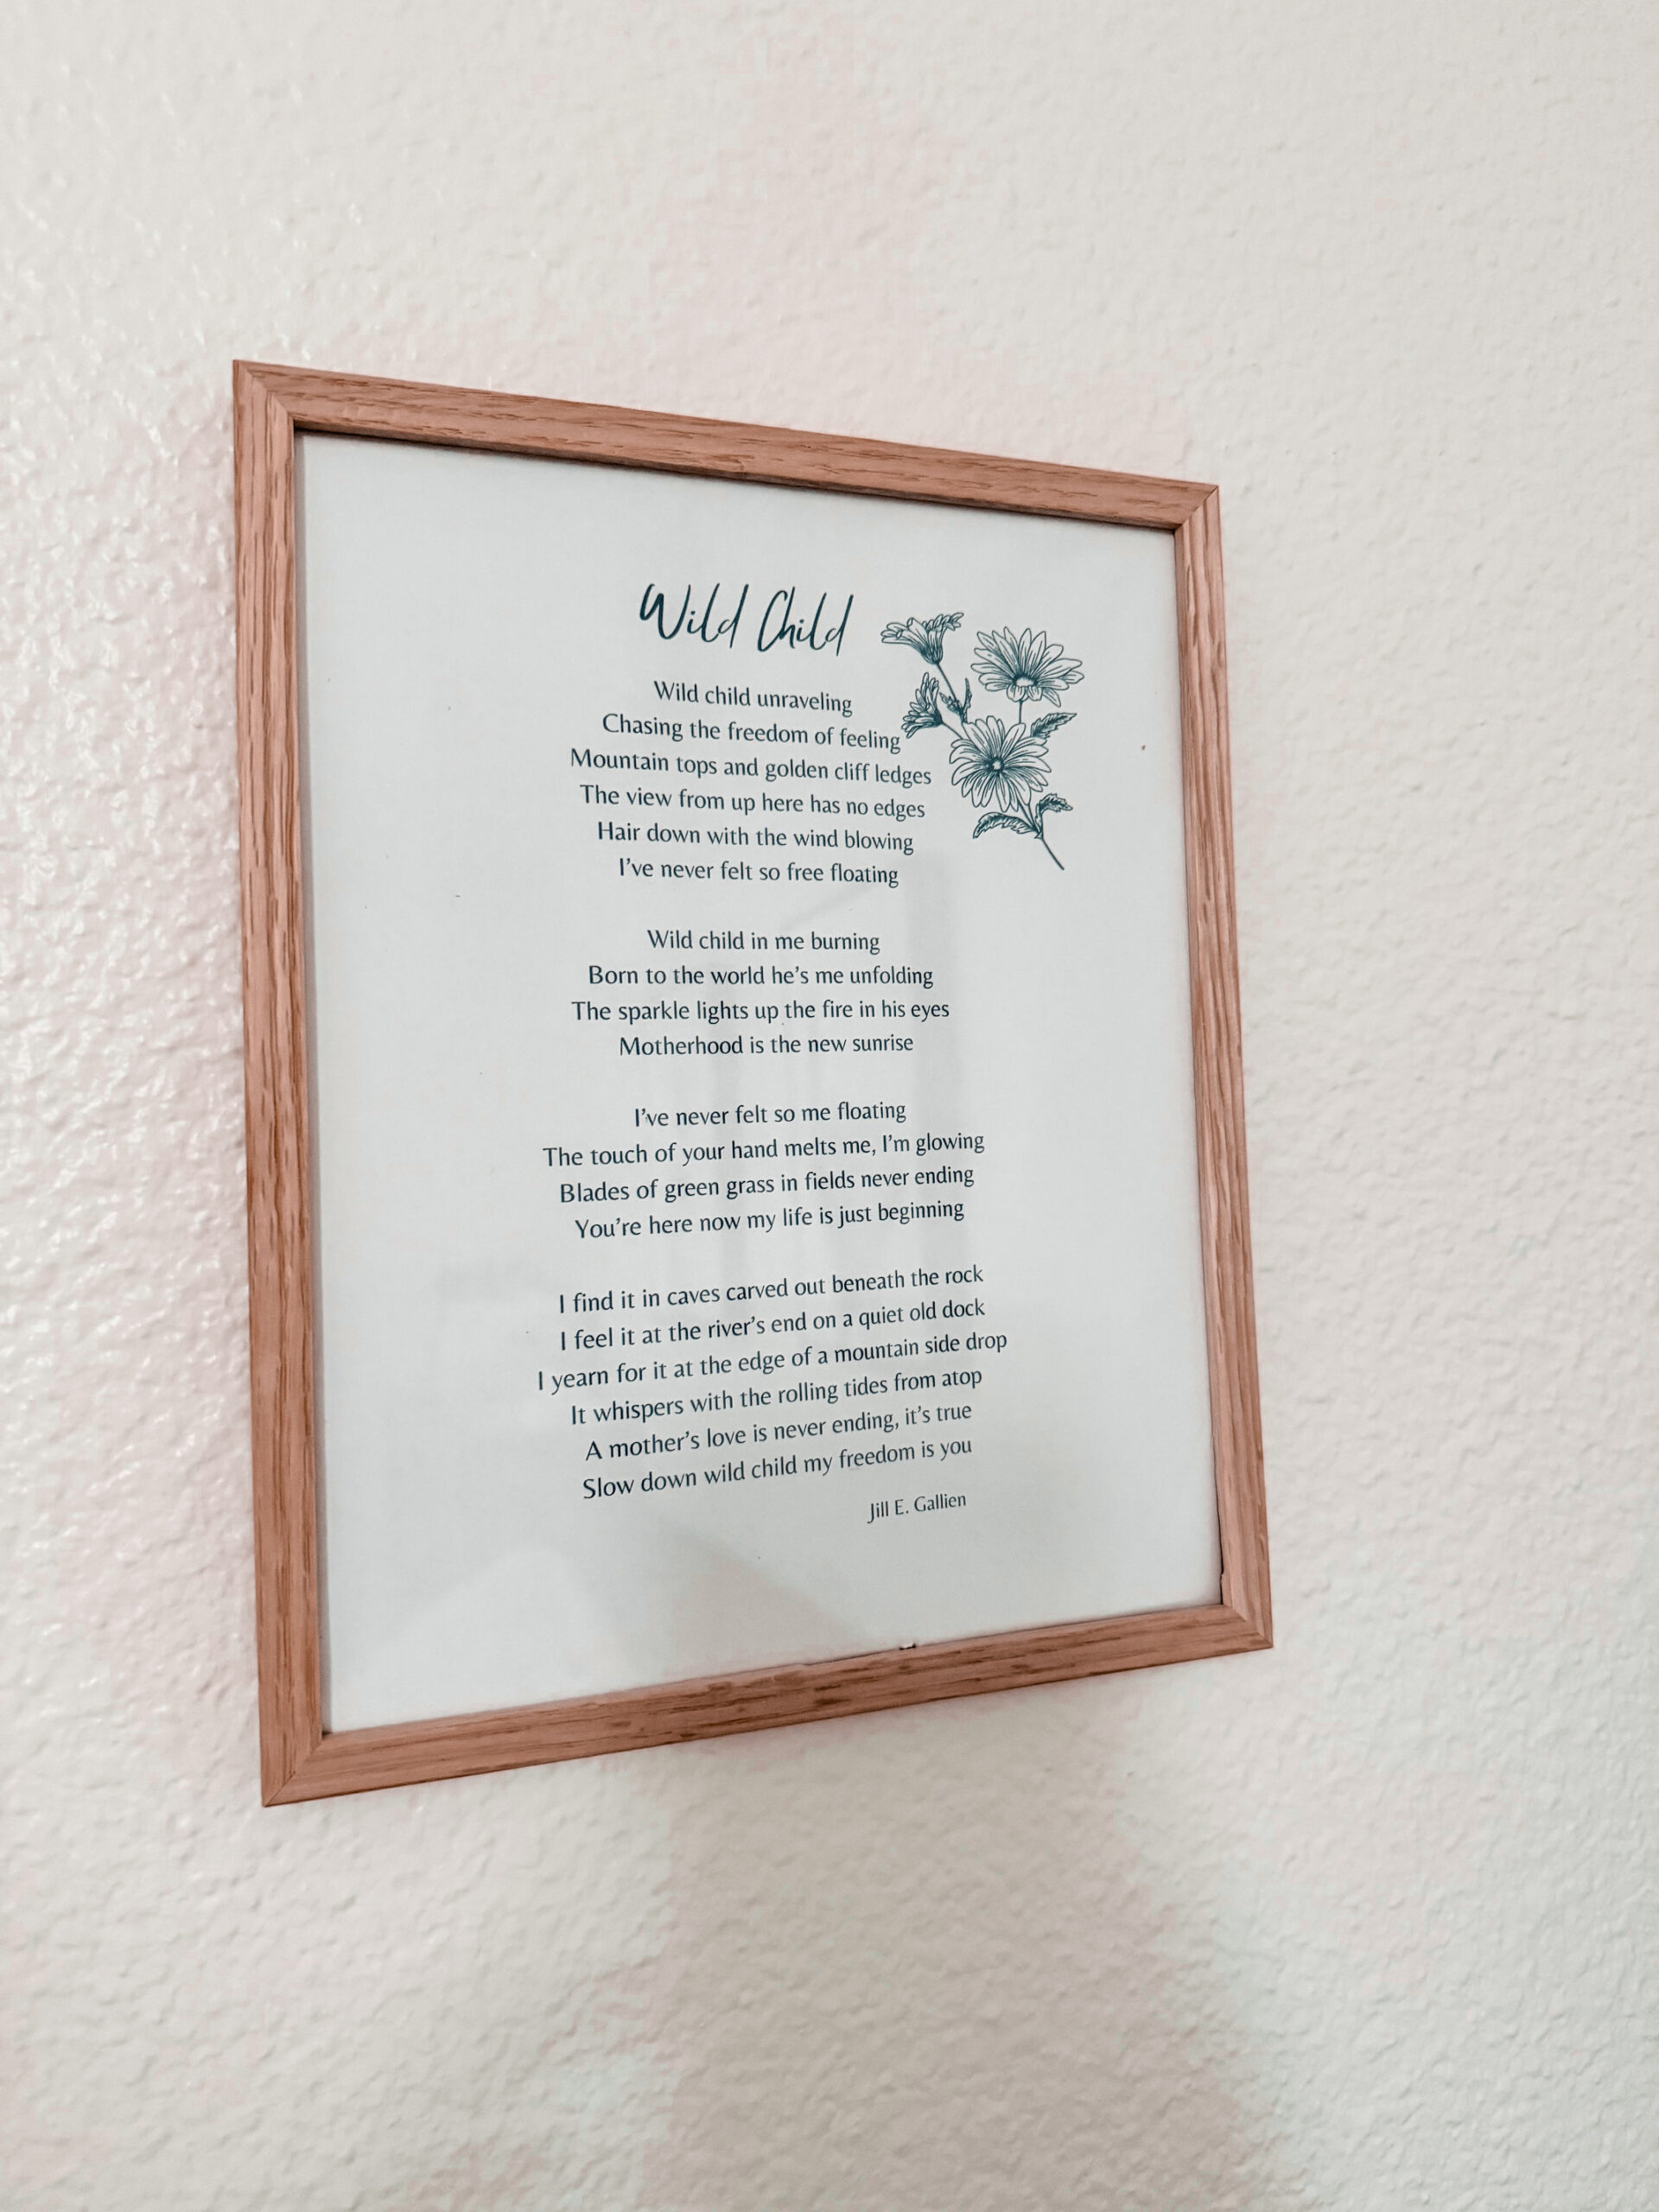 Wild Child
Wild child unraveling
Chasing the freedom of feeling
Mountain tops and golden cliff ledges
The view from up here has no edges
Hair down with the wind blowing
I've never felt so free floating
Wild child in me burning
Born to the world he's me unfolding
The sparkle lights up the fire in his eyes
Motherhood is the new sunrise
I've never felt so me floating
The touch of your hand melts me, I'm glowing
Blades of green grass in fields never ending
You're here now my life is just beginning
I find it in caves carved out beneath the rock
I feel it at the river's end on a quiet old dock
I yearn for it at the edge of a mountain side drop
It whispers with the rolling tides from atop
A mother's love is never ending, it's true
Slow down wild child my freedom is you
Jill E. Gallien